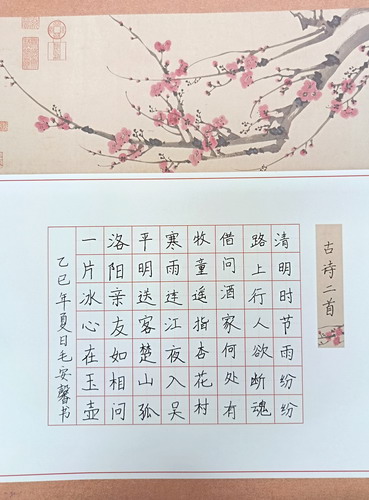 古诗二首
清明时节雨纷纷
路上行人欲断魂
借问酒家何处有
牧童遥指杏花村
寒雨连江夜入吴
平明送客楚山孤
洛阳亲友如相问
一片冰心在玉壶
乙巳年夏日毛安馨书